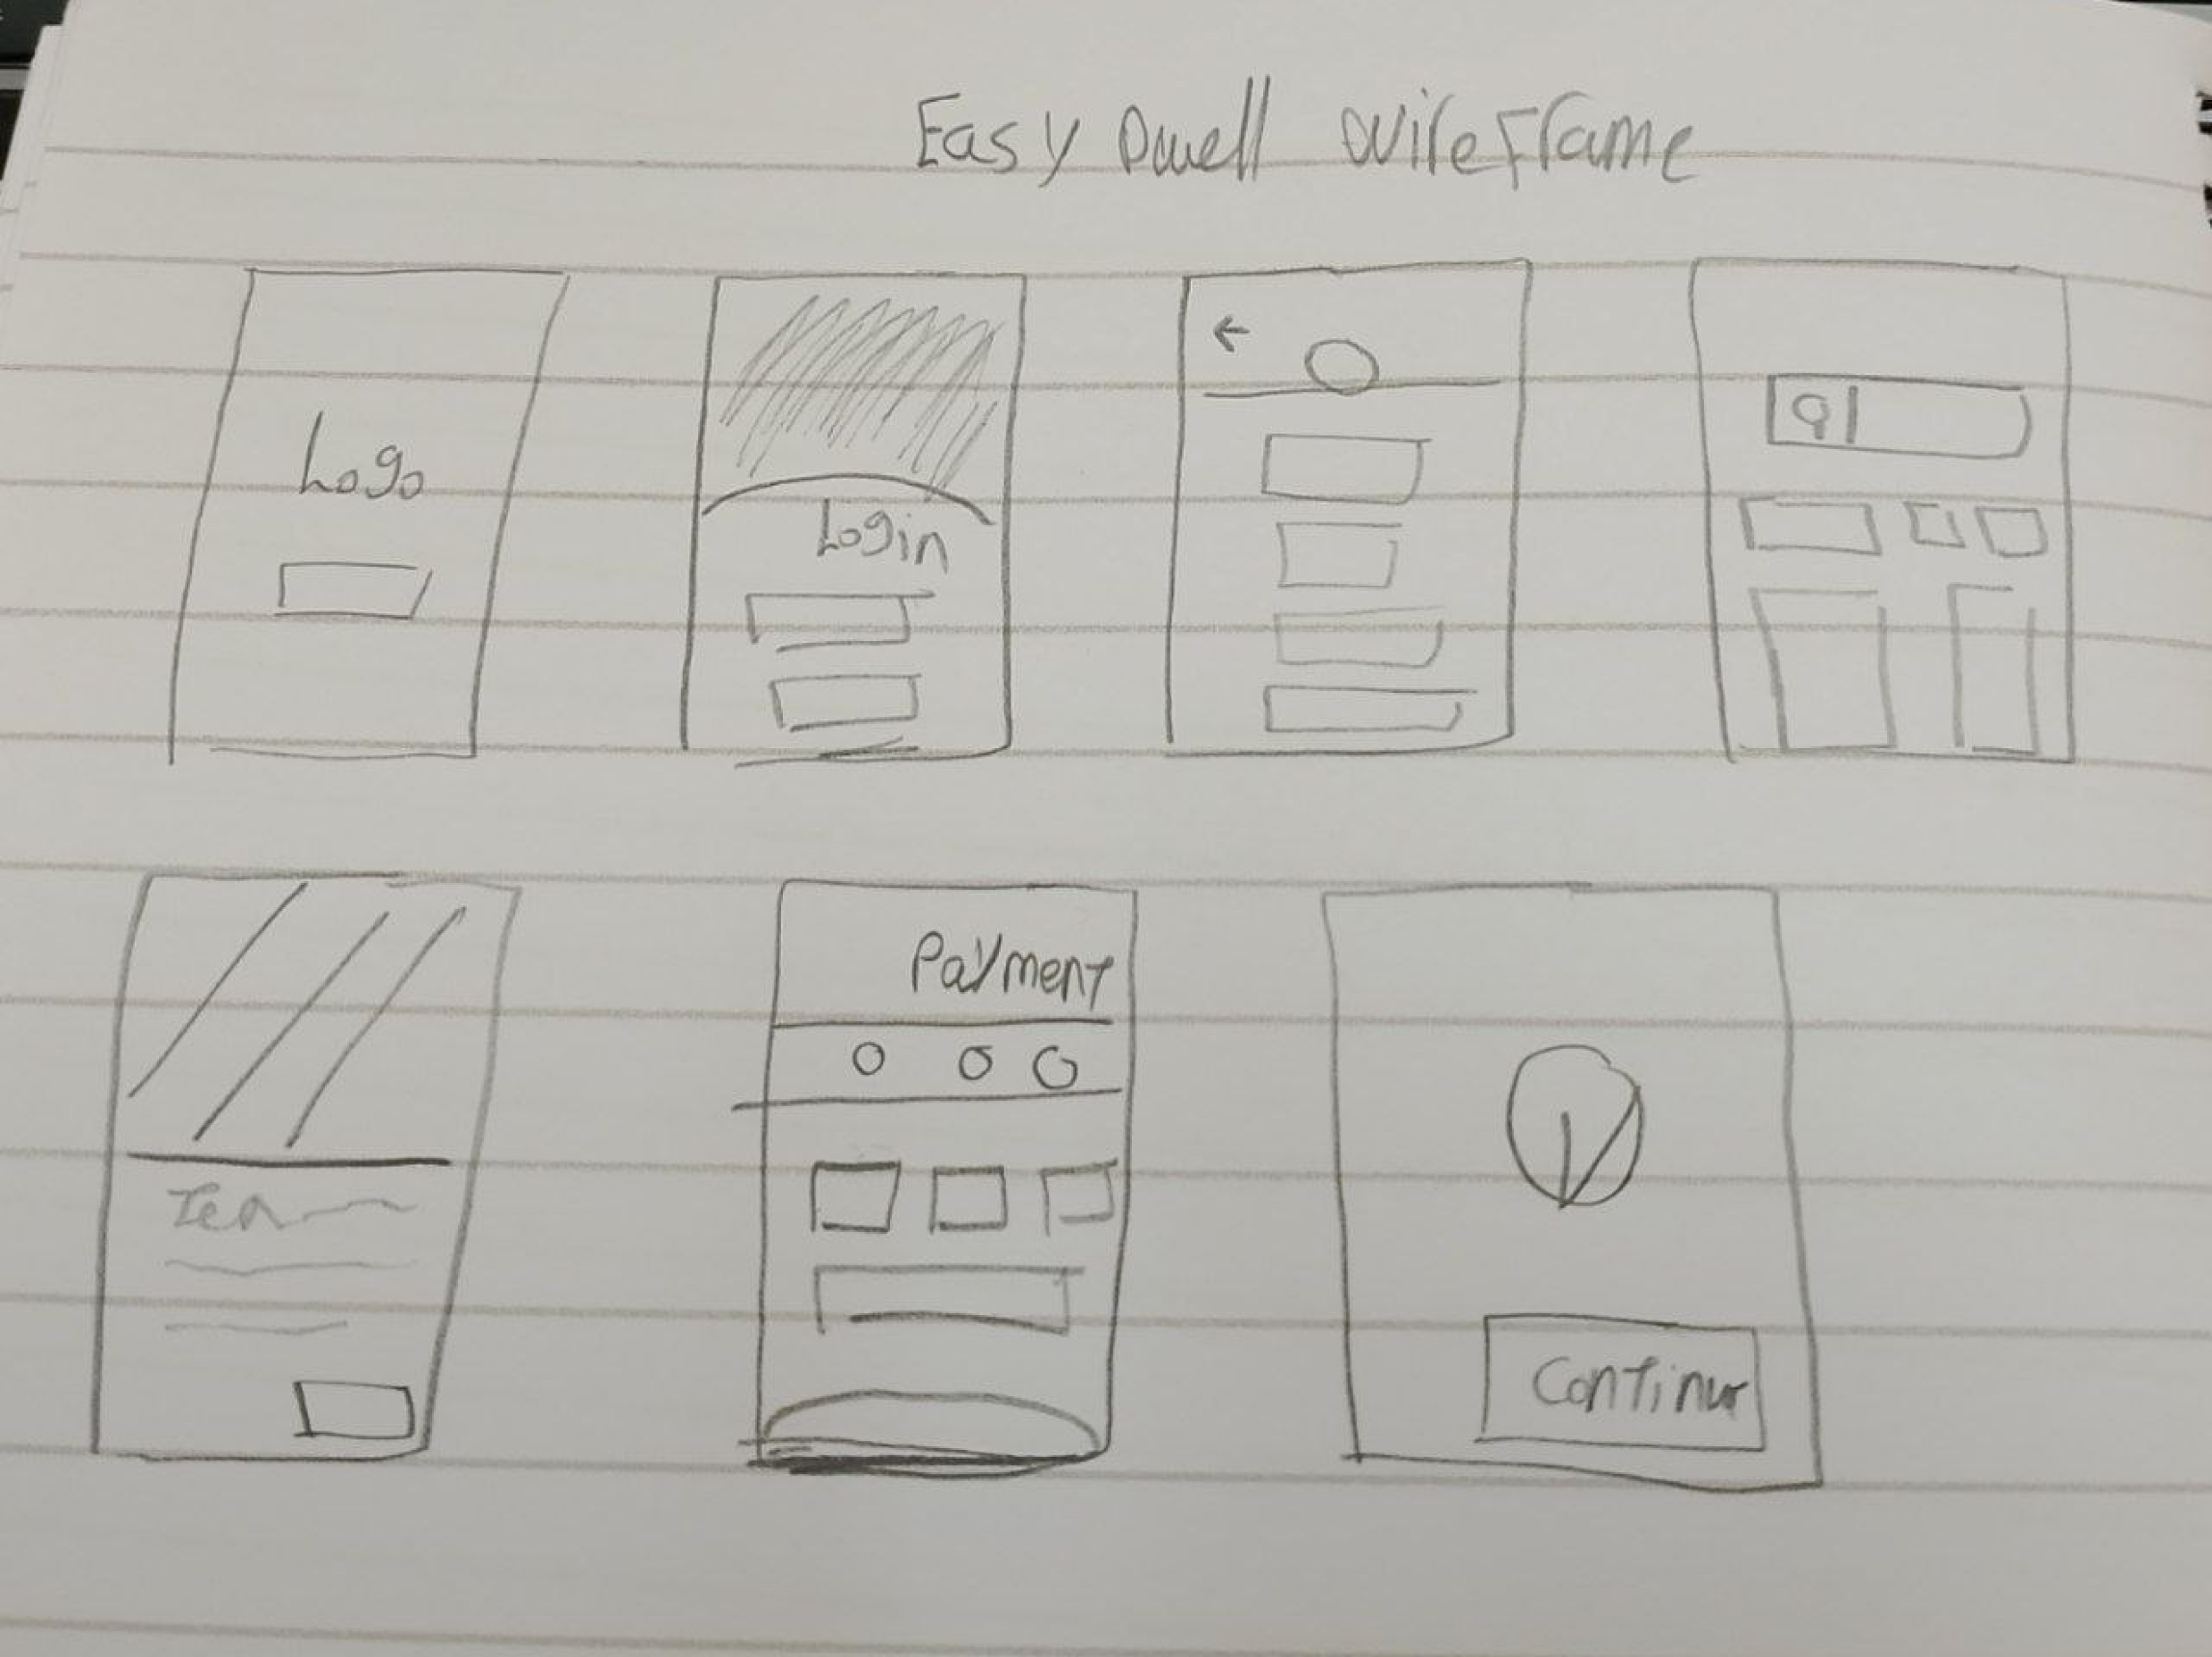 Easy Dwell wireframe
Logo
Login
Payment
Continue